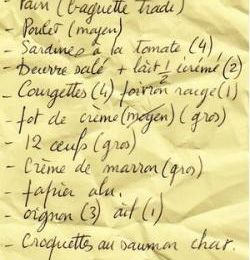 Pain (baguette tradi)
- Poulet (moyen)
- Sardines à la tomate (4)
- Beurre salé + lait 1/2 écrémé (2)
- Courgettes (4) poivron rouge (1)
- pot de crème (moyen) (gros)
- 12 œufs (gros)
- Crème de marron (gros)
- papier alu.
- oignon (3) ail (1)
- Croquettes au saumon chat.